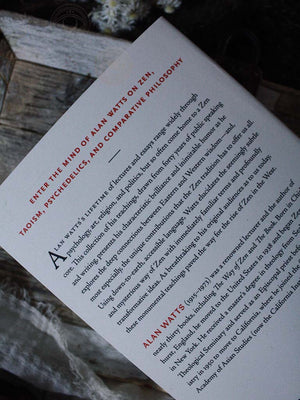 ENTER THE MIND OF ALAN WATTS ON ZEN,
TAOISM, PSYCHEDELICS, AND COMPARATIVE PHILOSOPHY
ALAN WATTS'S LIFETIME of lectures and essays range widely through
psychology, art, religion, and politics, but so often come home to a Zen
core. This collection of his teachings, drawn from forty years of public speaking
and writing, captures his characteristic wildness and inimitable humor as he
explores the deep connections between Eastern and Western wisdom—and,
most especially, the unique contributions that the Zen tradition has to offer us all.
Using down-to-earth, accessible language, Watts elucidates the seemingly arbitrary
and mysterious ways of Zen with immediately familiar terms and profoundly
transformative ideas. As breathtaking in his original audiences as to us today,
these monumental teachings paved the way for the rise of Zen in the West.
ALAN WATTS (1915–1973) was a renowned lecturer and the author of
nearly thirty books, including The Way of Zen and The Book. Born in Chisle-
hurst, England, he moved to the United States in 1938 and began Zen
in New York. He received a master's degree in theology from Seabury-
Theological Seminary and served as an Episcopal priest
iary in 1950 to move to California, where he joined the
Academy of Asian Studies (now the California Insti